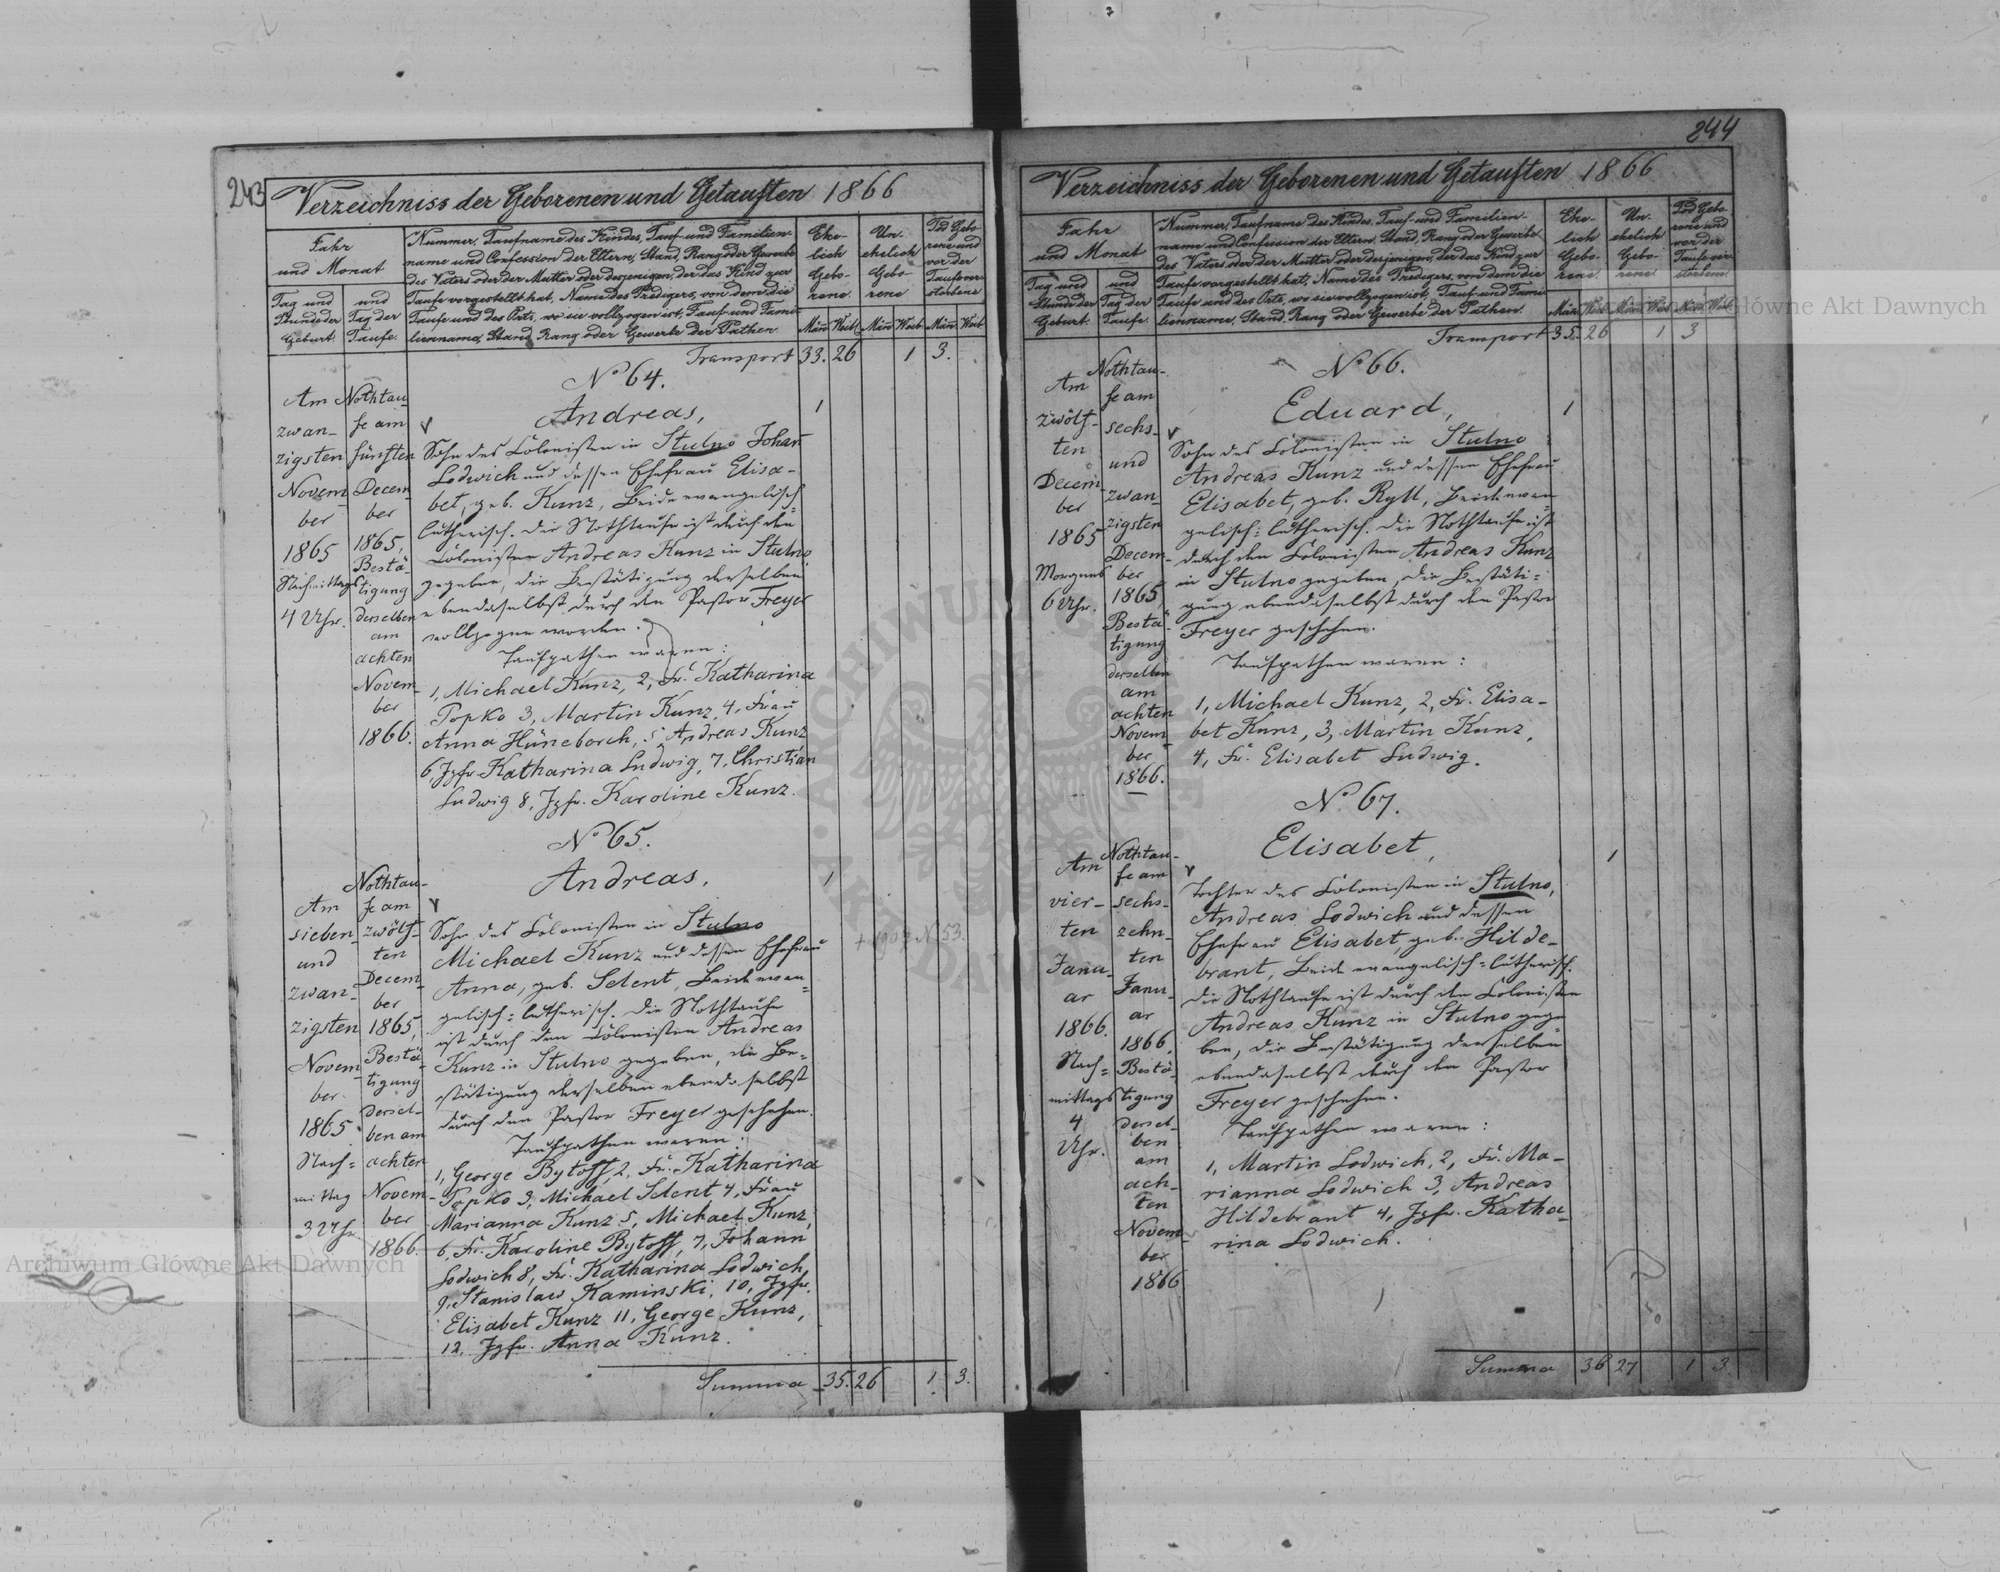 243
Verzeichniss der Geborenen und Getauften 1866
Jahr
und Monat
Tag und
Stunde der
Geburt.
und
Tag der
Taufe.
Nummer, Taufname des Kindes, Tauf- und Familien-
name und Confession der Eltern, Stand, Rang oder Gewerbe
des Vaters oder der Mutter oder desjenigen, der das Kind zur
Taufe vorgestellt hat, Name des Predigers, von dem die
Taufe und des Orts, wo sie vollzogen ist, Tauf- und Fami-
lienname, Stand, Rang oder Gewerbe der Pathen.
Ehe-
lich
Gebo-
rene.
Un-
ehelich
Gebo-
rene
Tod Gebo-
rene und
vor der
Taufe ver-
storbene
Män. Weib. Män. Weib. Män. Weib.
Transport 33. 26 1 3.
Am
zwan-
zigsten
Novem-
ber
1865
Nachmittags
4 Uhr.
Nothtau-
fe am
fünften
Decem-
ber
1865,
Bestä-
tigung
derselben
am
achten
Novem-
ber
1866.
No 64.
Andreas, 1
Sohn des Colonisten in Stulno Johan
Lodwich und dessen Ehefrau Elisa-
bet, geb. Kunz, Beide evangelisch-
lutherisch. Die Nothtaufe ist durch den
Colonisten Andreas Kunz in Stulno
gegeben, die Bestätigung derselben
ebendaselbst durch den Pastor Freyer
vollzogen worden.
Taufpathen waren:
1, Michael Kunz, 2, Fr. Katharina
Popko 3, Martin Kunz, 4, Frau
Anna Hüneborch, 5, Andreas Kunz
6, Jgfr. Katharina Ludwig, 7, Christian
Ludwig 8, Jgfr. Karoline Kunz.
Am
sieben-
und
zwan-
zigsten
Novem-
ber
1865
Nach-
mittag
3 Uhr.
Nothtau-
fe am
zwölf-
ten
Decem-
ber
1865,
Bestä-
tigung
dersel-
ben am
achten
Novem-
ber
1866.
No 65.
Andreas, 1
Sohn des Colonisten in Stulno
Michael Kunz und dessen Ehefrau
Anna, geb. Selent, Beide evan-
gelisch-lutherisch. Die Nothtaufe
ist durch den Colonisten Andreas
Kunz in Stulno gegeben, die Be-
stätigung derselben ebendaselbst
durch den Pastor Freyer geschehen.
Taufpathen waren:
1, George Bytoff, 2, Fr. Katharina
Popko 3, Michael Selent 4, Frau
Marianna Kunz 5, Michael Kunz,
6, Fr. Karoline Bytoff, 7, Johann
Lodwich 8, Fr. Katharina Lodwich,
9, Stanislaw Kaminski, 10, Jgfr.
Elisabet Kunz 11, George Kunz,
12, Jgfr. Anna Kunz.
Summa 35. 26 1. 3.
244
Verzeichniss der Geborenen und Getauften 1866
Jahr
und Monat
Tag und
Stunde der
Geburt.
und
Tag der
Taufe.
Nummer, Taufname des Kindes, Tauf- und Familien-
name und Confession der Eltern, Stand, Rang oder Gewerbe
des Vaters oder der Mutter oder desjenigen, der das Kind zur
Taufe vorgestellt hat, Name des Predigers, von dem die
Taufe und des Orts, wo sie vollzogen ist, Tauf- und Fami-
lienname, Stand, Rang oder Gewerbe der Pathen.
Ehe-
lich
Gebo-
rene.
Un-
ehelich
Gebo-
rene
Tod Gebo-
rene und
vor der
Taufe ver-
storbene
Män. Weib. Män. Weib. Män. Weib.
Transport 35. 26 1 3
Am
zwölf-
ten
Decem-
ber
1865
Morgens
6 Uhr.
Nothtau-
fe am
sechs-
und
zwan-
zigsten
Decem-
ber
1865,
Bestä-
tigung
derselben
am
achten
Novem-
ber
1866.
No 66.
Eduard, 1
Sohn des Colonisten in Stulno
Andreas Kunz und dessen Ehefrau
Elisabet, geb. Rytt, Beide evan-
gelisch-lutherisch. Die Nothtaufe ist
durch den Colonisten Andreas Kunz
in Stulno gegeben, die Bestäti-
gung ebendaselbst durch den Pastor
Freyer geschehen.
Taufpathen waren:
1, Michael Kunz, 2, Fr. Elisa-
bet Kunz, 3, Martin Kunz,
4, Fr. Elisabet Ludwig.
Am
vier-
ten
Janu-
ar
1866.
Nach-
mittags
4
Uhr.
Nothtau-
fe am
sechs-
zehn-
ten
Janu-
ar
1866,
Bestä-
tigung
dersel-
ben
am
ach-
ten
Novem-
ber
1866
No 67.
Elisabet, 1
Tochter des Colonisten in Stulno,
Andreas Lodwich und dessen
Ehefrau Elisabet, geb. Hilde-
brant, Beide evangelisch-lutherisch.
Die Nothtaufe ist durch den Colonisten
Andreas Kunz in Stulno gege-
ben, die Bestätigung derselben
ebendaselbst durch den Pastor
Freyer geschehen.
Taufpathen waren:
1, Martin Lodwich, 2, Fr. Ma-
rianna Lodwich 3, Andreas
Hildebrant 4, Jgfr. Katha-
rina Lodwich.
Summa 36 27 1 3.
Archiwum Główne Akt Dawnych
Główne Akt Dawnych